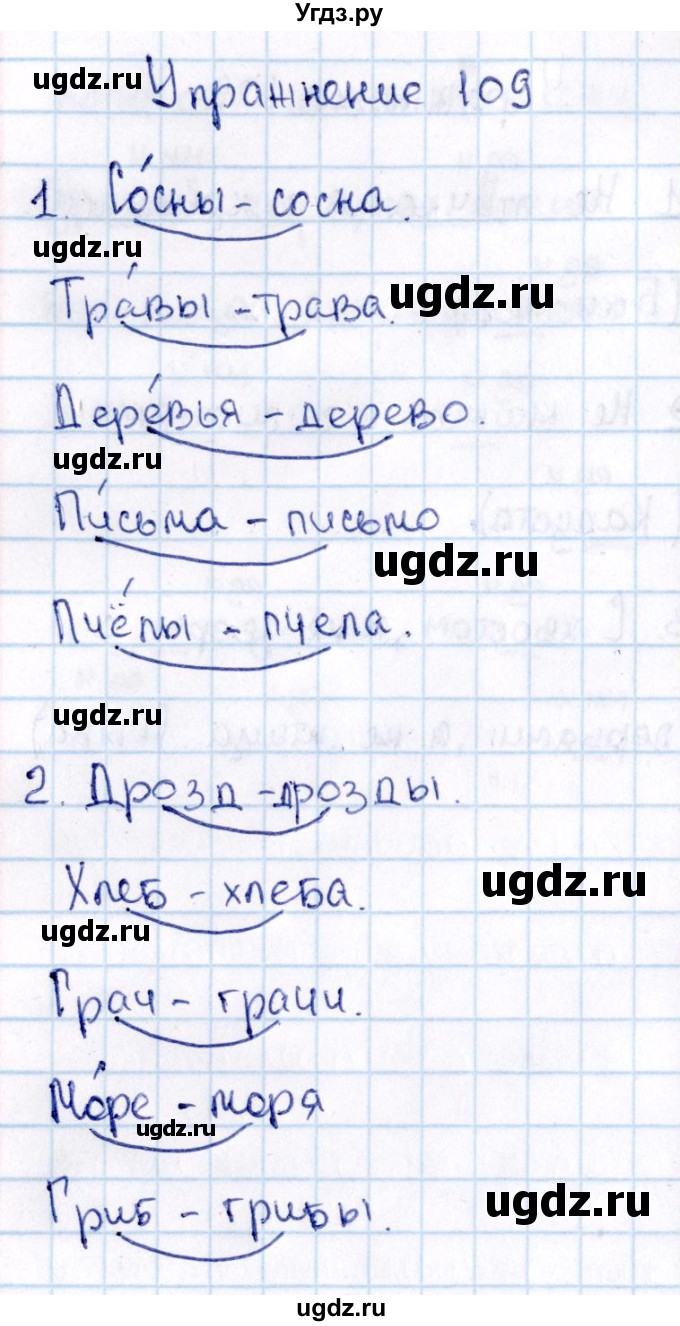 Угдз.ру
ugdz.ru
Упражнение 109
1. Со́сны - сосна.
ugdz.ru
Тра́вы - трава.
ugdz.ru
Дере́вья - дерево.
ugdz.ru
Пи́сьма - письмо.
ugdz.ru
Пчё́лы - пчела.
ugdz.ru
2. Дрозд - дрозды.
ugdz.ru
Хлеб - хлеба.
ugdz.ru
Грач - грачи.
Мо́ре - моря
ugdz.ru
Гриб - грибы.
ugdz.ru
ugdz.ru